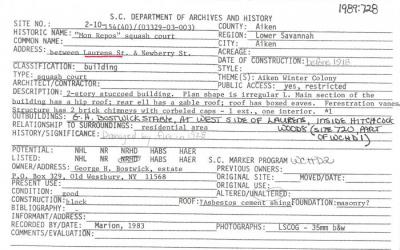 1989:728
S.C. DEPARTMENT OF ARCHIVES AND HISTORY
SITE NO.: 2-10-154(A0)/(03329-03-003) COUNTY: Aiken
HISTORIC NAME: "Mon Repos" squash court REGION: Lower Savannah
COMMON NAME: CITY: Aiken
ADDRESS: between Laurens St. & Newberry St. ACREAGE:
DATE OF CONSTRUCTION: before 1918
CLASSIFICATION: building STYLE:
TYPE: squash court THEME(S): Aiken Winter Colony
ARCHITECT/CONTRACTOR: PUBLIC ACCESS: yes, restricted
DESCRIPTION: 2-story stuccoed building. Plan shape is irregular L. Main section of the
building has a hip roof; rear ell has a gable roof; roof has boxed eaves. Ferestration varies
Structure has 2 brick chimneys with corbeled caps - 1 ext., one interior. #1
OUTBUILDINGS: G.H. BOSTWICK STABLE, AT WEST SIDE OF LAURENS, INSIDE HITCHCOCK
RELATIONSHIP TO SURROUNDINGS: residential area WOODS (SITE 720, PART
HISTORY/SIGNIFICANCE: Damaged by fire in OF WCHD1)
POTENTIAL: NHL NR NRHD HABS HAER
LISTED: NHL NR NRHD HABS HAER S.C. MARKER PROGRAM WCHD2
OWNER/ADDRESS: George H. Bostwick, estate PREVIOUS OWNERS:
P.O. Box 329, Old Westbury, NY 11568 ORIGINAL SITE: MOVED/DATE:
PRESENT USE: ORIGINAL USE:
CONDITION: good ALTERED/UNALTERED:
CONSTRUCTION: block ROOF: ?Asbestos cement shing FOUNDATION: masonry?
BIBLIOGRAPHY: -
INFORMANT/ADDRESS:
RECORDED BY/DATE: Marion, 1983 PHOTOGRAPHS: LSCOG - 35mm b&w
COMMENTS/EVALUATION: